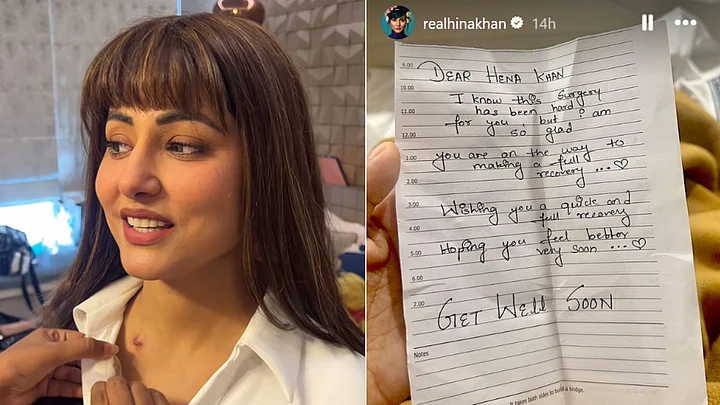 realhinakhan 14h
9.00
DEAR HENA KHAN
10.00
I know this Surgery
has been hard
11.00
for you, but I am
so glad
12.00
you are on the way to
1.00
making a full
recovery ... ♡
2.00
3.00
Wishing you a quick and
full recovery
4.00
Hoping you feel better
5.00
very soon ... ♡
6.00
7.00
GET WELL SOON
Notes
It takes both sides to build a bridge.